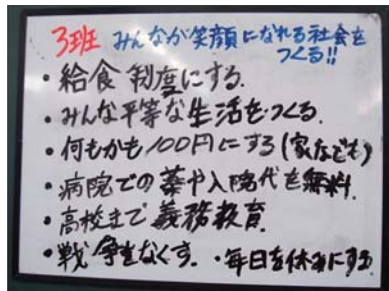 3班 みんなが笑顔になれる社会を
つくる!!
・給食制度にする.
・みんな平等な生活をつくる.
・何もかも100円にする(家なども)
・病院での薬や入院代を無料.
・高校まで義務教育.
・戦争をなくす. ・毎日を休みにする.